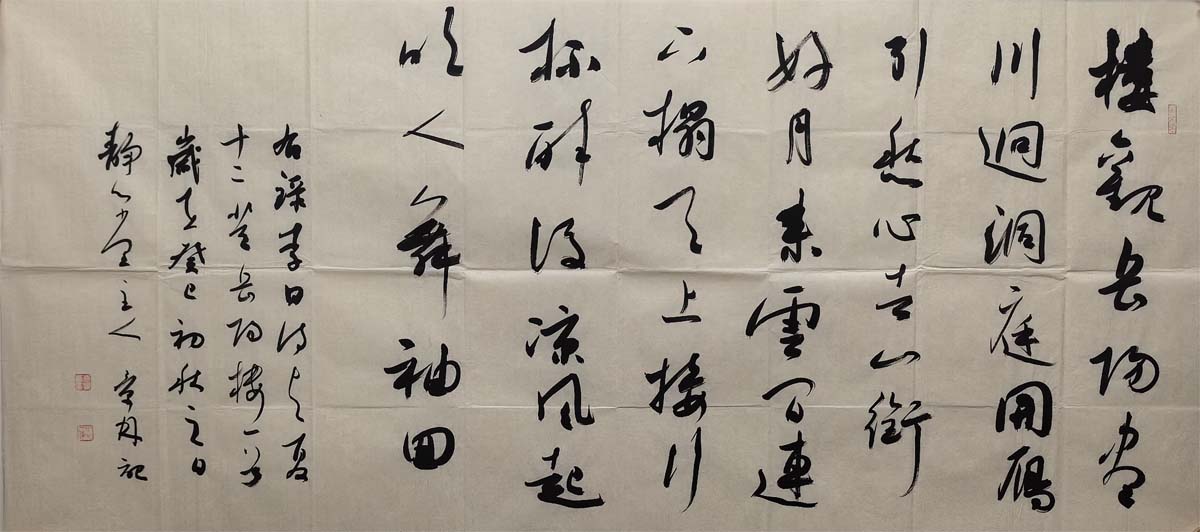 樓觀岳陽盡
川迥洞庭開鴈
引愁心去山銜
好月來雲間連
下榻天上接行
杯醉後凉風起
吹人舞袖回
右録李白詩與夏
十二登岳陽樓一首
歲在癸巳初秋之日
靜心堂主人 記